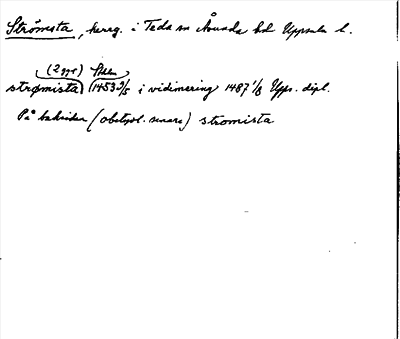 Strömsta, herrg. i Teda sn Åsunda hd Uppsala l.
(2 ggr) Sthlm
strømista (1453 9/5 i vidimering 1487 1/8 Upps. dipl.
På baksidan (obetydl. senare) stromista